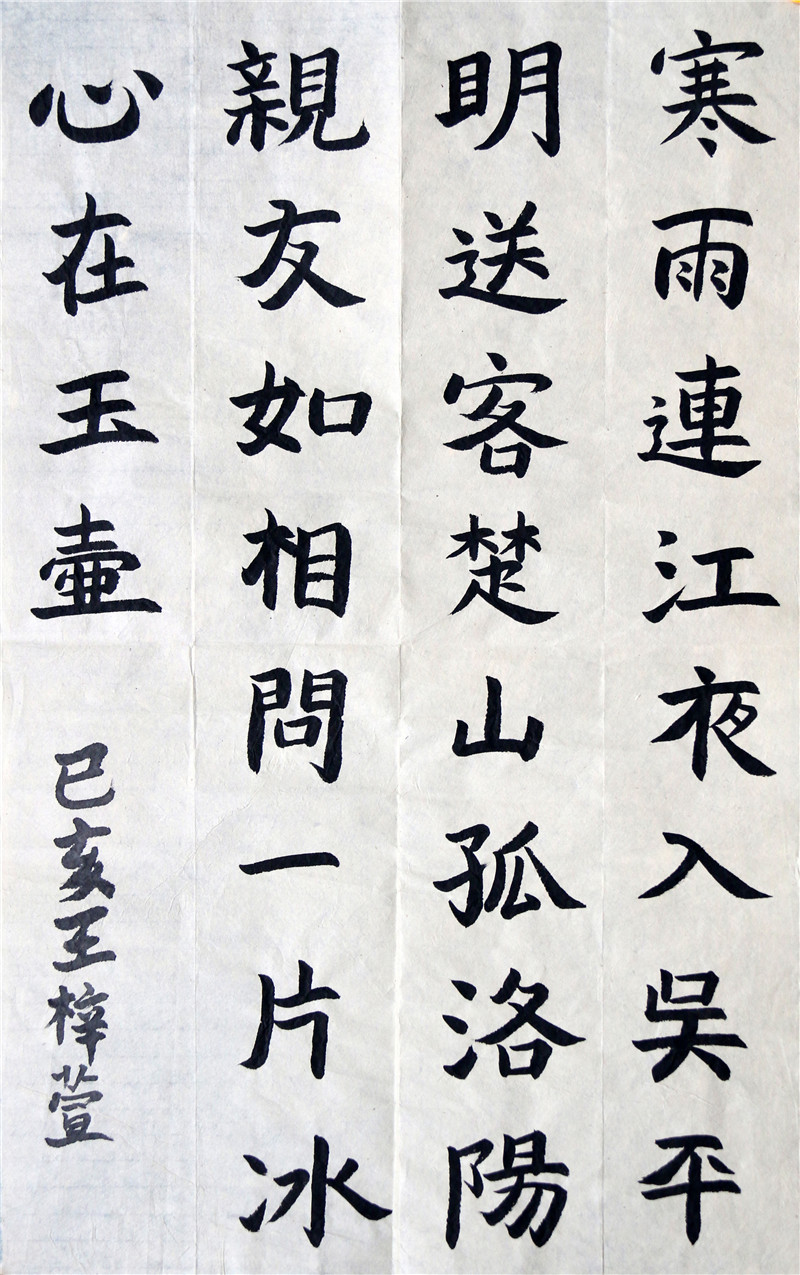 寒雨連江夜入吳平
明送客楚山孤洛陽
親友如相問一片冰
心在玉壷
已亥王梓萱